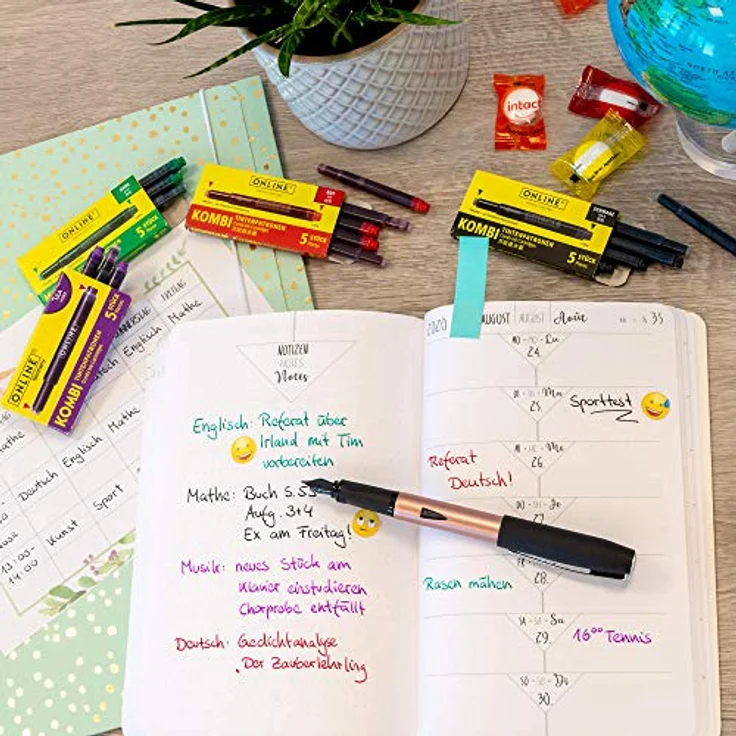 intact
NORTH
ONLINE
5 STÜCK
ONLINE
KOMBI TINTENPATRONEN
5 STÜCK
ONLINE
KOMBI TINTENPATRONEN
5 STÜCK
ONLINE
KOMBI
5 STÜCK
FREITAG
Englisch Mathe
Mathe
Deutsch Englisch Mathe
Kunst Sport
13:00-
14:00
NOTIZEN
NOTES
Notes
Englisch: Referat über
Irland mit Tim
vorbereiten
Mathe: Buch S.53
Aufg. 3+4
Ex am Freitag!
Musik: neues Stück am
Klavier einstudieren
Chorprobe entfällt
Deutsch: Gedichtanalyse
"Der Zauberlehrling
2020 AUGUST AUGUST Août 35
MO - MO - Lu
24.
Ma
25. Sporttest
MI - WE - Me
26.
Referat
Deutsch!
DO - TH - Je
27.
28.
Rasen mähen
SA - SA - Sa
29. 16⁰⁰ Tennis
SO - SU - Di
30.